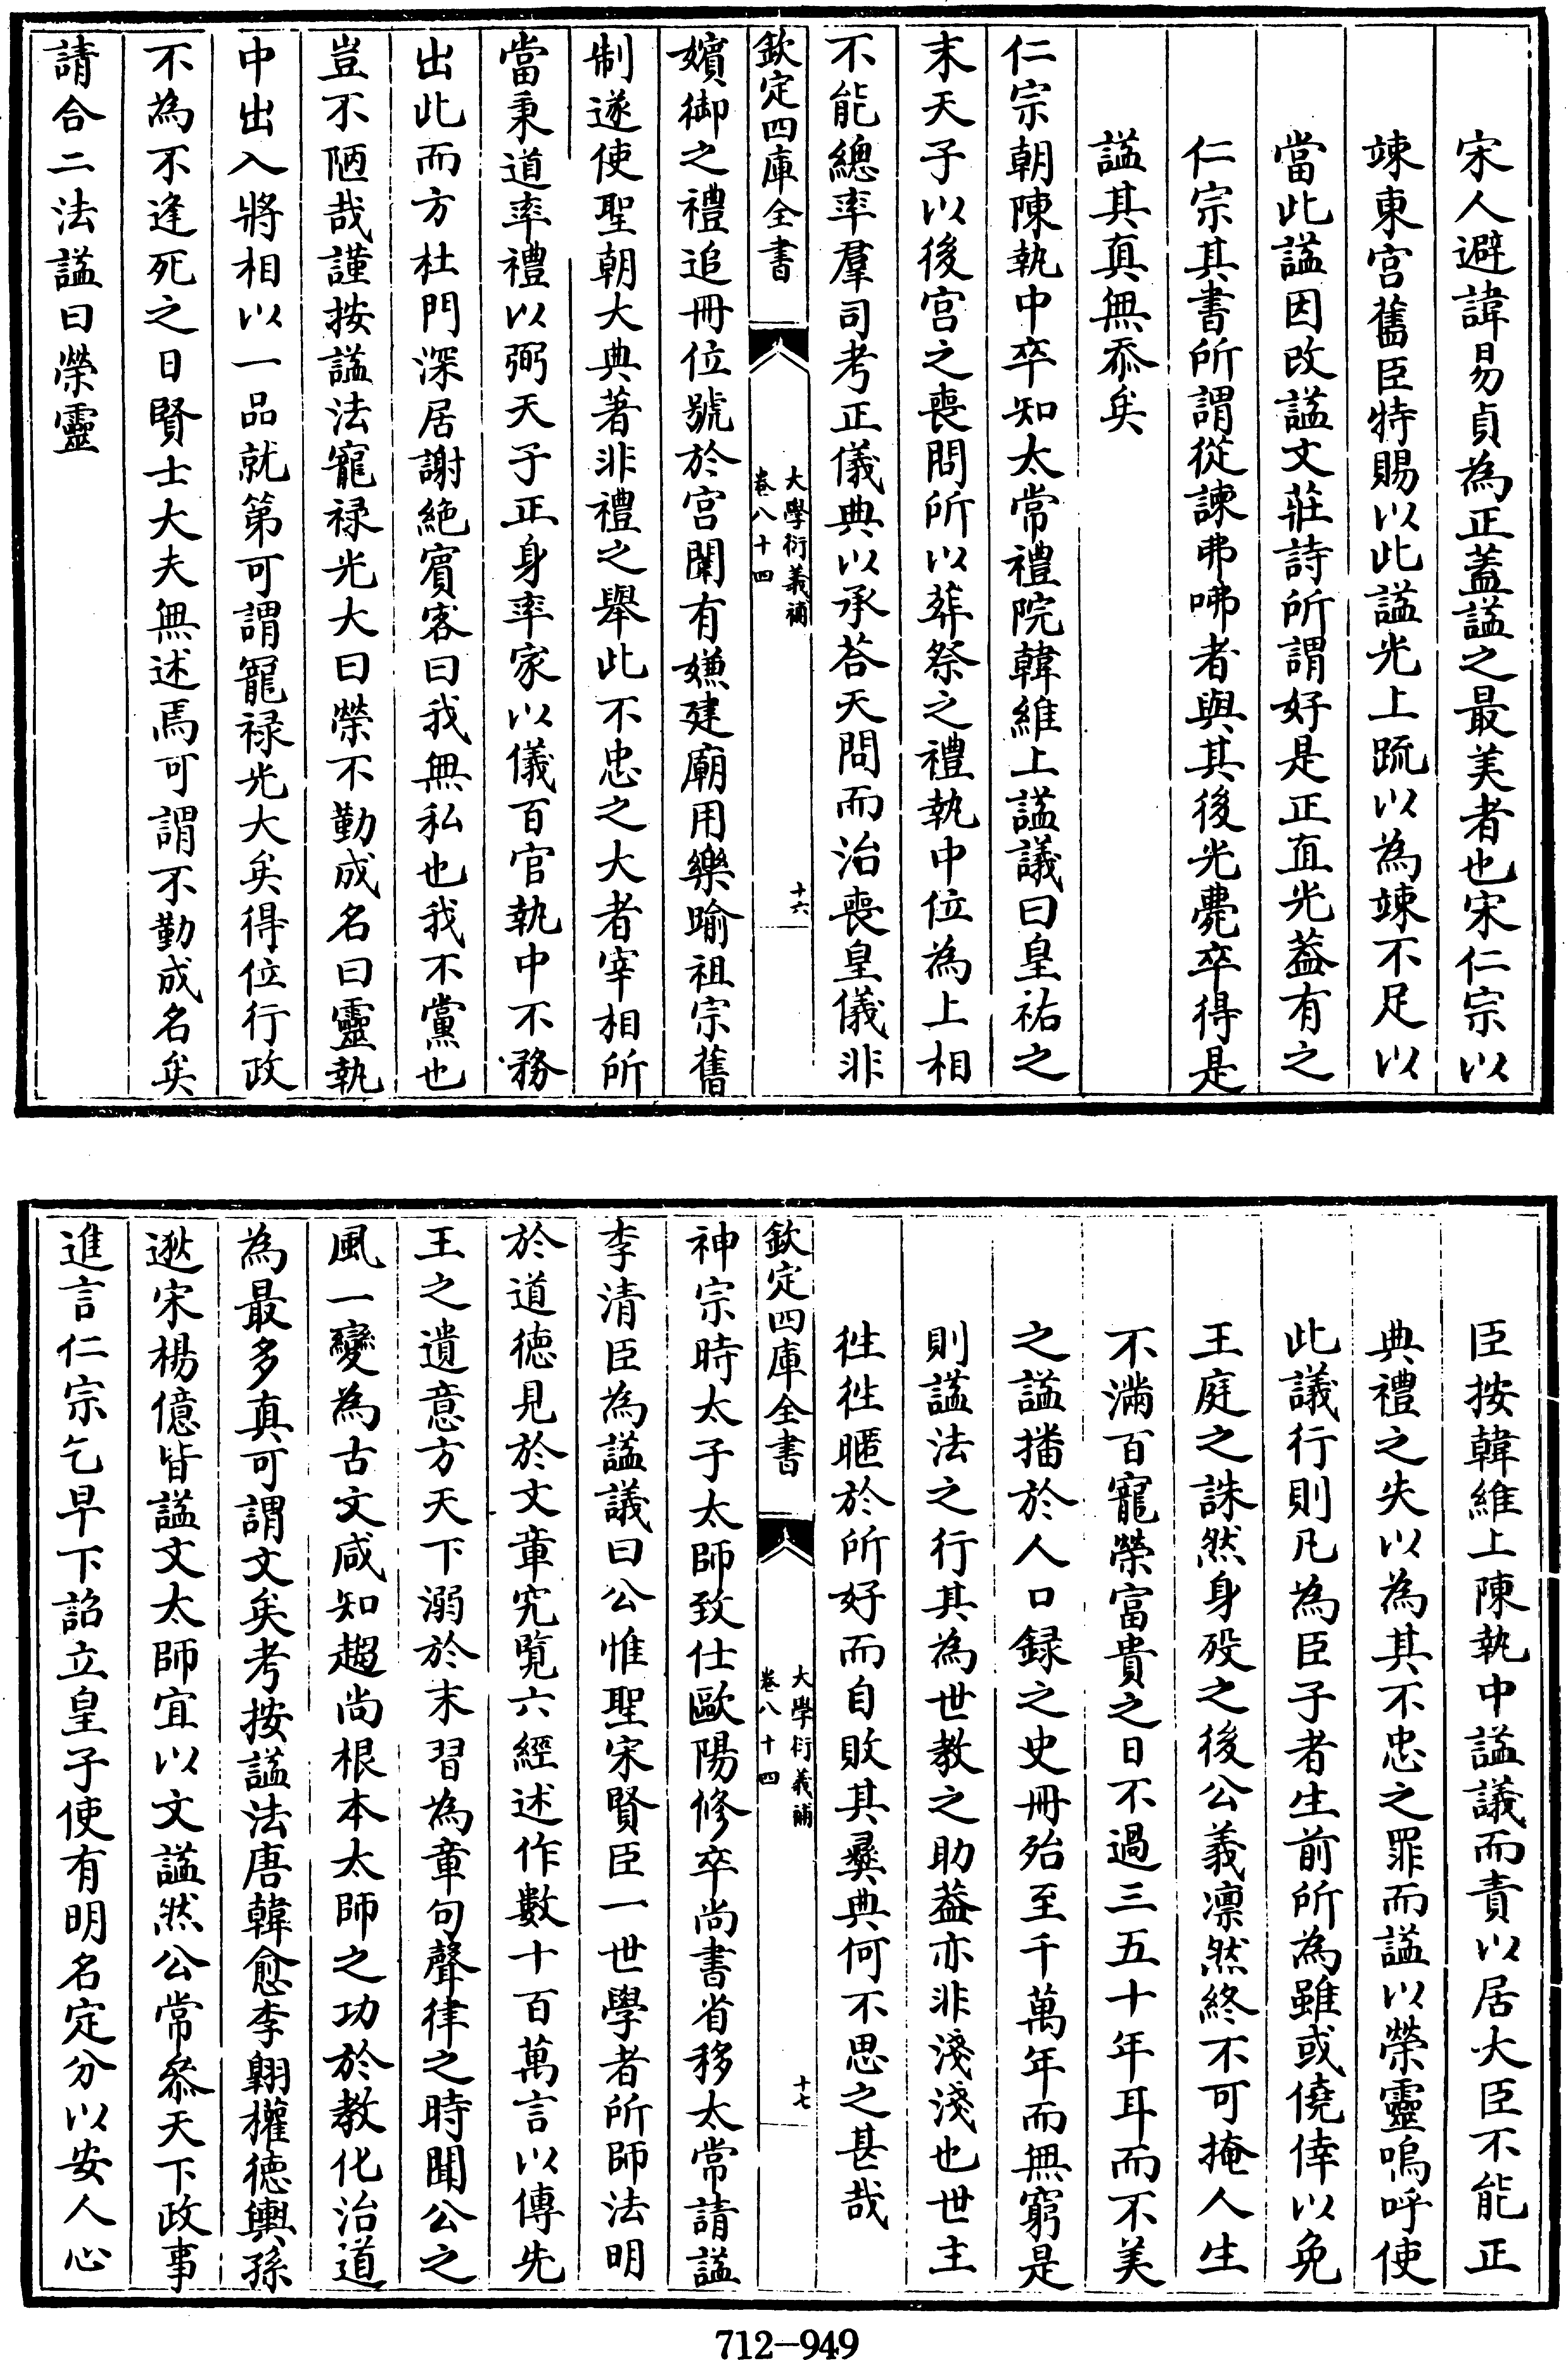 宋人避諱易貞為正蓋謚之最美者也宋仁宗以
竦東宫舊臣特賜以此謚光上䟽以為竦不足以
當此謚因改謚文莊詩所謂好是正直光葢有之
仁宗其書所謂從諫弗咈者與其後光薨卒得是
謚其真無忝矣
仁宗朝陳執中卒知太常禮院韓維上謚議曰皇祐之
末天子以後宫之喪問所以葬祭之禮執中位為上相
不能總率羣司考正儀典以承荅天問而治喪皇儀非
欽定四庫全書
大學衍義補
卷八十四
十六
嬪御之禮追冊位號於宫闈有嫌建廟用樂喻祖宗舊
制遂使聖朝大典著非禮之舉此不忠之大者宰相所
當秉道率禮以弼天子正身率家以儀百官執中不務
出此而方杜門深居謝絶賓客曰我無私也我不黨也
豈不陋哉謹按謚法寵禄光大曰榮不勤成名曰靈執
中出入將相以一品就第可謂寵禄光大矣得位行政
不為不逢死之日賢士大夫無述焉可謂不勤成名矣
請合二法謚曰榮靈
臣按韓維上陳執中謚議而責以居大臣不能正
典禮之失以為其不忠之罪而謚以榮靈嗚呼使
此議行則凡為臣子者生前所為雖或僥倖以免
王庭之誅然身殁之後公義凛然終不可掩人生
不滿百寵榮富貴之日不過三五十年耳而不美
之謚播於人口録之史冊殆至千萬年而無窮是
則謚法之行其為世教之助葢亦非淺淺也世主
徃徃暱於所好而自敗其彞典何不思之甚哉
欽定四庫全書
大學衍義補
卷八十四
十七
神宗時太子太師致仕歐陽修卒尚書省移太常請謚
李清臣為謚議曰公惟聖宋賢臣一世學者所師法明
於道德見於文章究覧六經述作數十百萬言以傳先
王之遺意方天下溺於末習為章句聲律之時聞公之
風一變為古文咸知趨尚根本太師之功於教化治道
為最多真可謂文矣考按謚法唐韓愈李翺權德輿孫
逖宋楊億皆謚文太師宜以文謚然公常叅天下政事
進言仁宗乞早下詔立皇子使有明名定分以安人心
712-949